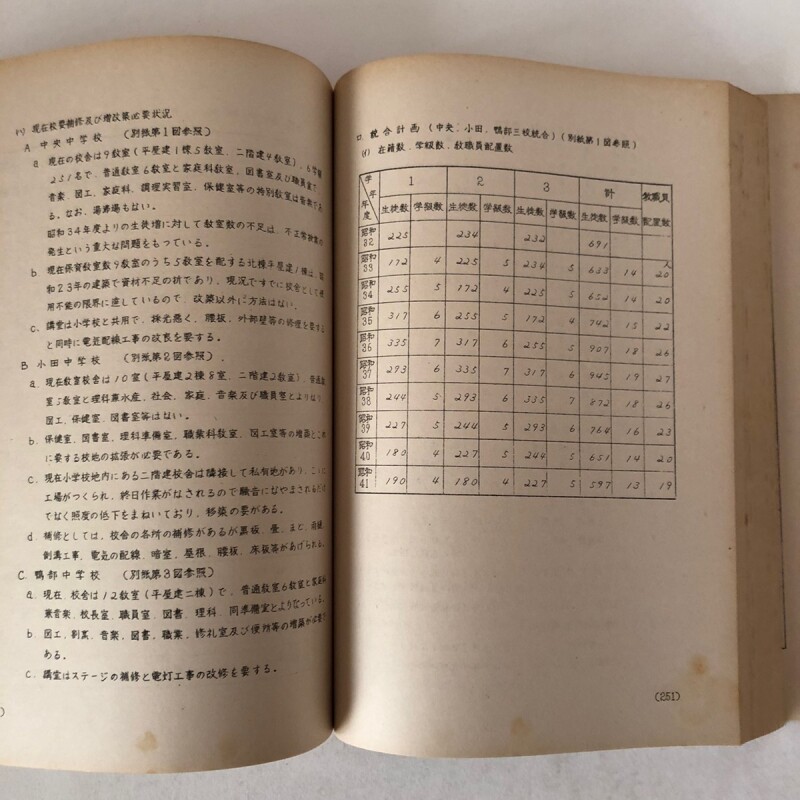 (ハ) 現在校要補修及び増改築必要状況
A 中央中学校 (別紙第1図参照)
a 現在の校舎は9教室(平屋建1棟5教室、二階建4教室)、6学級
251名で、普通教室6教室と家庭科教室、図書室及び職員室で
音楽、図工、家庭科、調理実習室、保健室等の特別教室は皆無であ
る。なお、湯沸場もない。
昭和34年度よりの生徒増に対して教室数の不足は、不正常授業の
発生という重大な問題をもっている。
b 現在保有教室数9教室のうち5教室を配する北棟平屋建1棟は、昭
和23年の建築で資材不足の折であり、現況ですでに校舎として使
用不能の限界に達しているので、改築以外に方法はない。
c. 講堂は小学校と共用で、採光悪く、腰板、外部壁等の修理を要する
と同時に電気配線工事の改良を要する。
B 小田中学校 (別紙第2図参照).
a. 現在教室校舎は10室(平屋建2棟8室、二階建2教室)、普通教
室5教室と理科兼水産、社会、家庭、音楽及び職員室とよりなり
図工、保健室、図書室等はない。
b. 保健室、図書室、理科準備室、職業科教室、図工室等の増築とこれ
に要する校地の拡張が必要である。
c. 現在小学校地内にある二階建校舎は隣接して私有地があり、
工場がつくられ、終日作業がなされるので騒音になやまされる
でなく照度の低下をまねいており、移築の要がある。
d. 補修としては、校舎の各所の補修があるが黒板、畳、まど、
側溝工事、電気の配線、暗室、屋根、腰板、床板等があげられる。
C. 鴨部中学校 (別紙第3図参照)
a. 現在、校舎は12教室(平屋建二棟)で、普通教室6教室と家庭科
兼音楽、校長室、職員室、図書、理科、同準備室とよりなっている。
b. 図工、音楽、図書、職業、室及び便所等の増築が必要で
ある。
c. 講堂はステージの補修と電灯工事の改修を要する。
ロ 統合計画 (中央、小田、鴨部三校統合) (別紙第1図参照)
(イ) 在籍数、学級数、教職員配置数
学年 年度 1 2 3 計 教職員配置数
生徒数 学級数 生徒数 学級数 生徒数 学級数 生徒数 学級数
昭和32 225 234 232 691
昭和33 172 4 225 5 234 5 633 14 20人
昭和34 255 5 172 4 225 5 652 14 20
昭和35 317 6 255 5 172 4 742 15 22
昭和36 335 7 317 6 255 5 907 18 26
昭和37 293 6 335 7 317 6 945 19 27
昭和38 244 5 293 6 335 7 872 18 26
昭和39 227 5 244 5 293 6 764 16 23
昭和40 180 4 227 5 244 5 651 14 20
昭和41 190 4 180 4 227 5 597 13 19
(251)